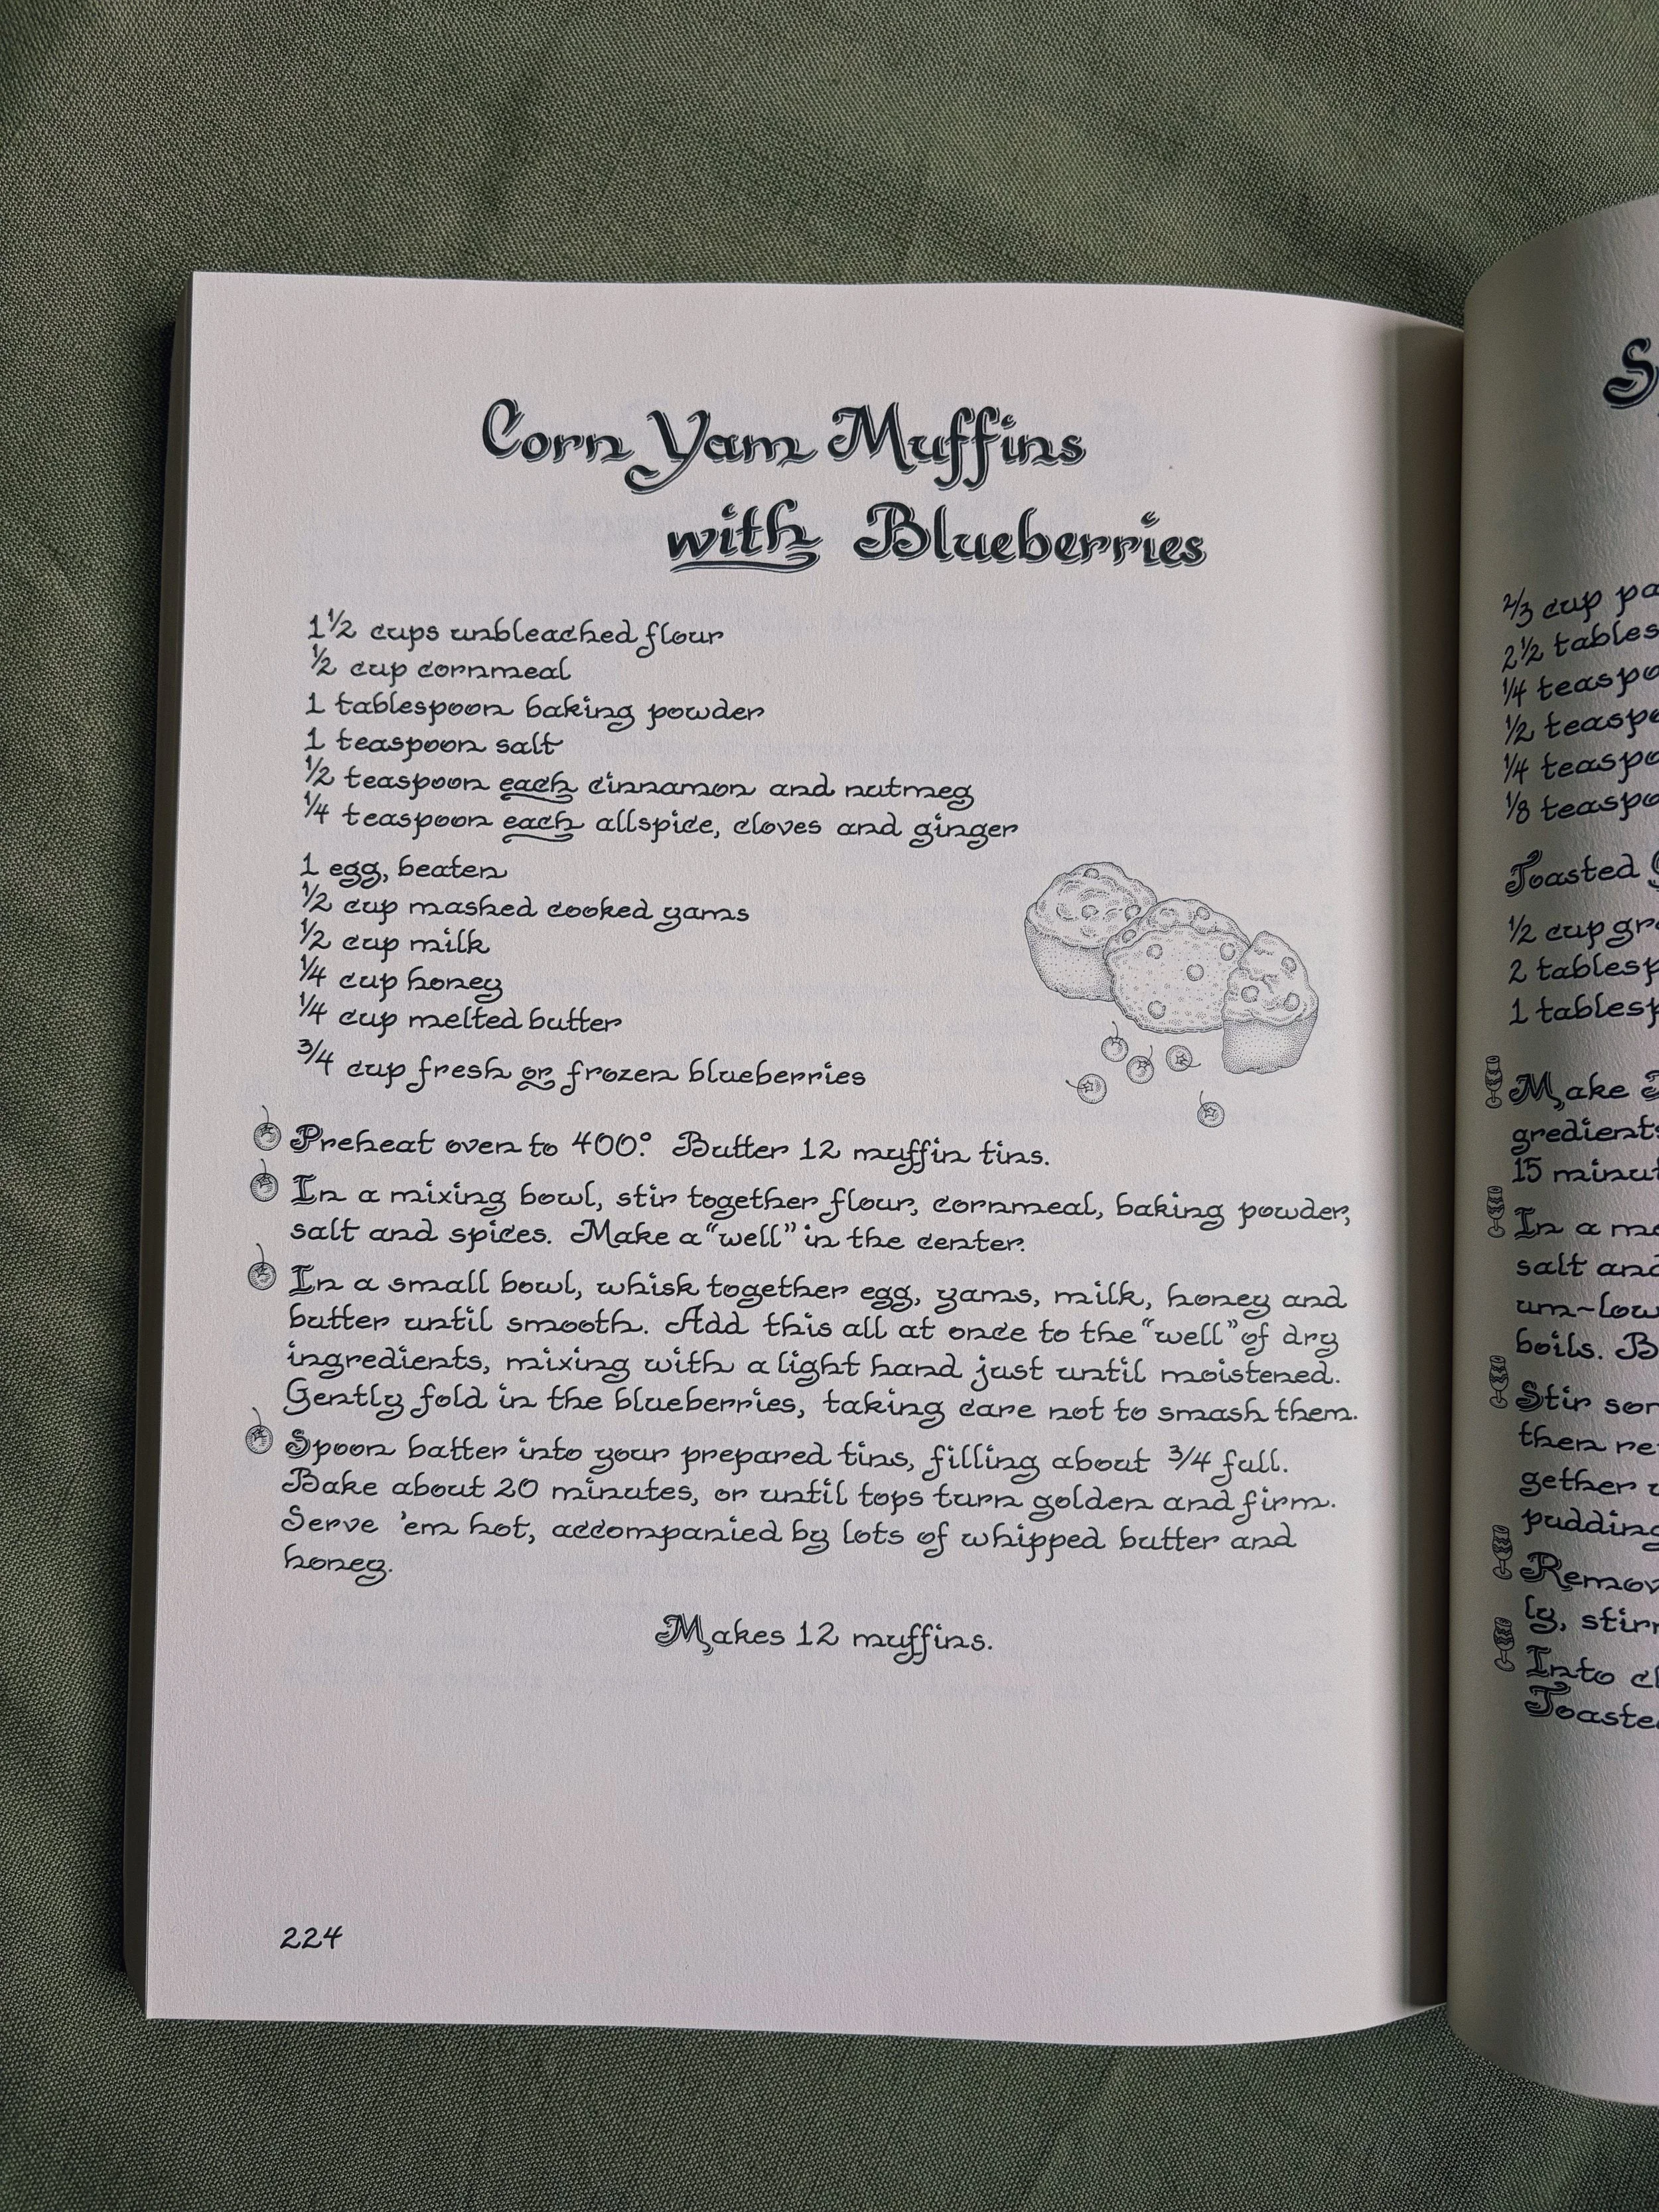 Corn Yam Muffins
with Blueberries
1 1/2 cups unbleached flour
1/2 cup cornmeal
1 tablespoon baking powder
1 teaspoon salt
1/2 teaspoon each cinnamon and nutmeg
1/4 teaspoon each allspice, cloves and ginger
1 egg, beaten
1/2 cup mashed cooked yams
1/2 cup milk
1/4 cup honey
1/4 cup melted butter
3/4 cup fresh or frozen blueberries
Preheat oven to 400°. Butter 12 muffin tins.
In a mixing bowl, stir together flour, cornmeal, baking powder,
salt and spices. Make a "well" in the center.
In a small bowl, whisk together egg, yams, milk, honey and
butter until smooth. Add this all at once to the "well" of dry
ingredients, mixing with a light hand just until moistened.
Gently fold in the blueberries, taking care not to smash them.
Spoon batter into your prepared tins, filling about 3/4 full.
Bake about 20 minutes, or until tops turn golden and firm.
Serve 'em hot, accompanied by lots of whipped butter and
honey.
Makes 12 muffins.
224
2/3 cup
2 1/2
1/4
1/2
1/4
1/8
Toasted
1/2 cup
2
1
Make
15
In a
salt and
boils.
Stir
then
gether
pudding
Into